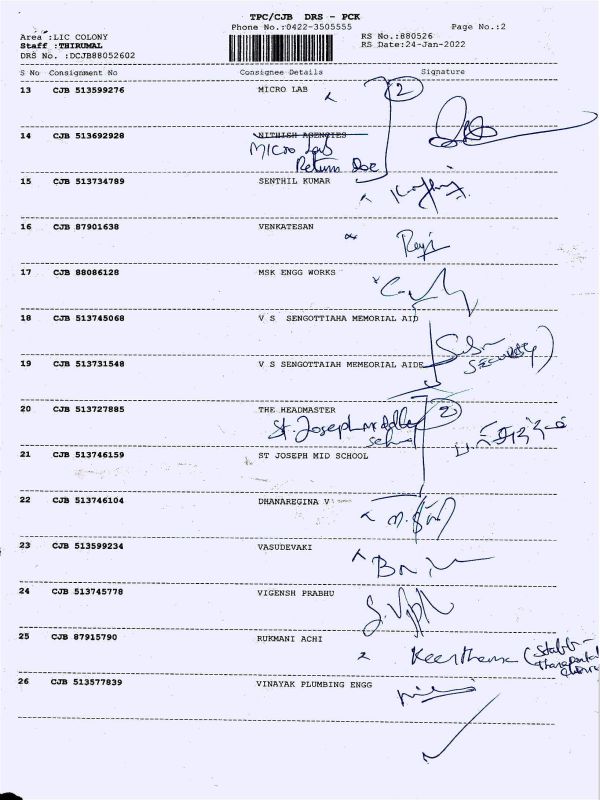 TPC/CJB DRS - PCK
Phone No.:0422-3505555 Page No.:2
Area :LIC COLONY RS No.:880526
Staff :THIRUMAL RS Date:24-Jan-2022
DRS No. :DCJB88052602
S No Consignment No Consignee Details Signature
13 CJB 513599276 MICRO LAB 2
14 CJB 513692928 NITHISH AGENCIES
Micro Lab
Return Doc
15 CJB 513734789 SENTHIL KUMAR
16 CJB 87901638 VENKATESAN
17 CJB 88086128 MSK ENGG WORKS
18 CJB 513745068 V S SENGOTTIAHA MEMORIAL AID
19 CJB 513731548 V S SENGOTTAIAH MEMEORIAL AIDE
Security
20 CJB 513727885 THE HEADMASTER 2
St. Joseph middle
School
21 CJB 513746159 ST JOSEPH MID SCHOOL
22 CJB 513746104 DHANAREGINA V
23 CJB 513599234 VASUDEVAKI
24 CJB 513745778 VIGENSH PRABHU
25 CJB 87915790 RUKMANI ACHI
Keerthana
26 CJB 513577839 VINAYAK PLUMBING ENGG